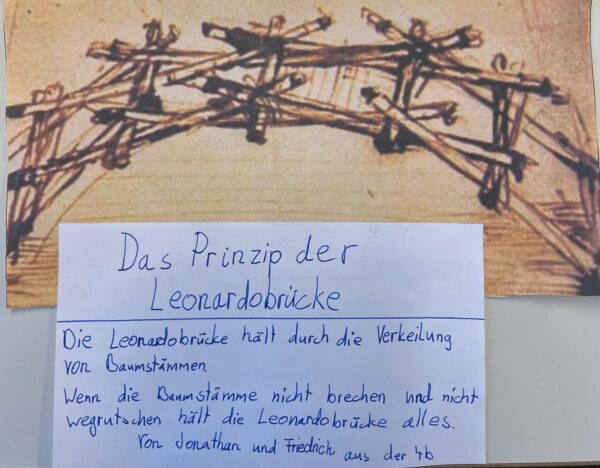 Das Prinzip der
Leonardobrücke
Die Leonardobrücke hält durch die Verkeilung
von Baumstämmen.
Wenn die Baumstämme nicht brechen und nicht
wegrutschen hält die Leonardobrücke alles.
Von Jonathan und Friedrich aus der 4b